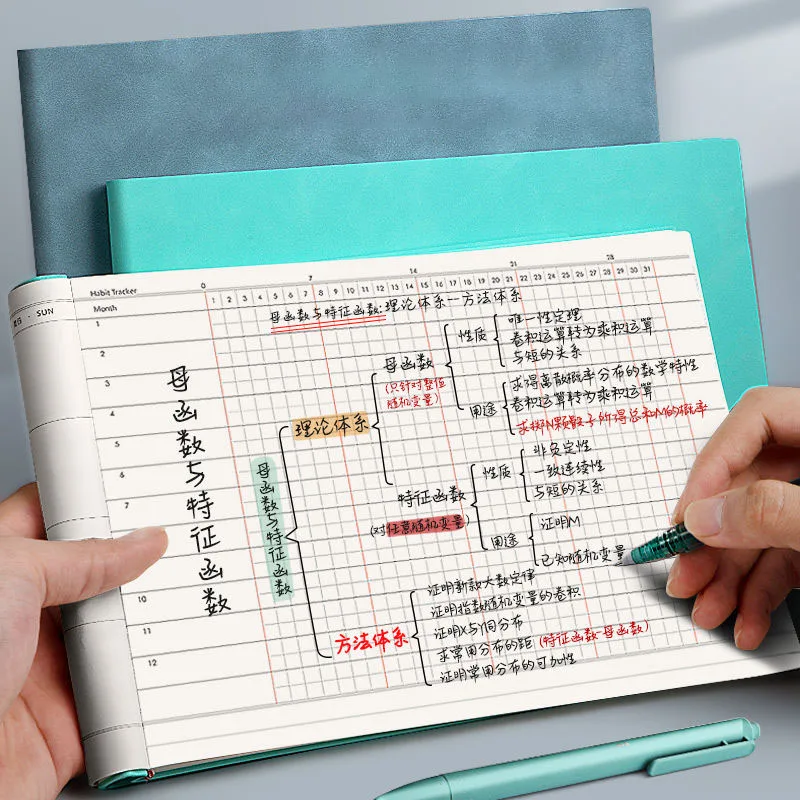 Habit Tracker
0 7 14 21 28
Month
1 2 3 4 5 6 7 8 9 10 11 12 13 14 15 16 17 18 19 20 21 22 23 24 25 26 27 28 29 30 31
SUN
1
2
3
4
5
6
7
10
11
12
母函数与特征函数:理论体系--方法体系
母函数与特征函数
母函数与特征函数
理论体系
母函数
(只针对整值
随机变量)
性质
唯一性定理
卷积运算转为乘积运算
与短的关系
用途
求得离散概率分布的数学特性
卷积运算转为乘积运算
求掷N颗骰子所得总和M的概率
特征函数
(对任意随机变量)
性质
非负定性
一致连续性
与短的关系
用途
证明M
已知随机变量
方法体系
证明新款大数定律
证明指数随机变量的卷积
证明X与同分布
求常用分布的距(特征函数-母函数)
证明常用分布的可加性